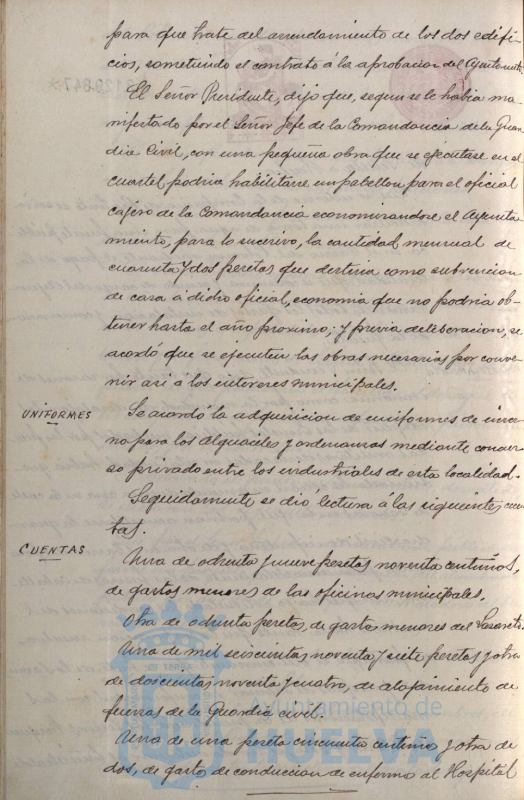 para que trate del arrendamiento de los dos edifi-
cios, sometiendo el contrato á la aprobacion del Ayuntamto
El Señor Presidente, dijo que, segun se le habia ma
nifestado por el Señor Jefe de la Comandancia de la Guar
dia Civil, con una pequeña obra que se ejecutase en el
cuartel podria habilitarse un pabellon para el oficial
cajero de la Comandancia economizandose el Ayunta
miento, para lo sucesivo, la cantidad mensual de
cuarenta y dos pesetas que destina como subvencion
de casa á dicho oficial, economia que no podria ob-
tener hasta el año proximo; y previa deliberacion, se
acordó que se ejecuten las obras necesarias por conve-
nir asi á los intereses municipales.
UNIFORMES
Se acordó la adquisicion de uniformes de invier-
no para los alguaciles y ordenanzas mediante concur-
so privado entre los industriales de esta localidad.
Seguidamente se dió lectura á las siguientes cuen
tas.
CUENTAS
Una de ochenta y nueve pesetas noventa centimos,
de gastos menores de las oficinas municipales.
Otra de ochenta pesetas, de gastos menores del Lazareto.
Una de mil seiscientas noventa y siete pesetas y otra
de doscientas noventa y cuatro, de alojamiento de
fuerzas de la Guardia civil.
Una de una peseta cincuenta centimos y otra de
dos, de gastos de conduccion de enfermos al Hospital
Ayuntamiento de
HUELVA